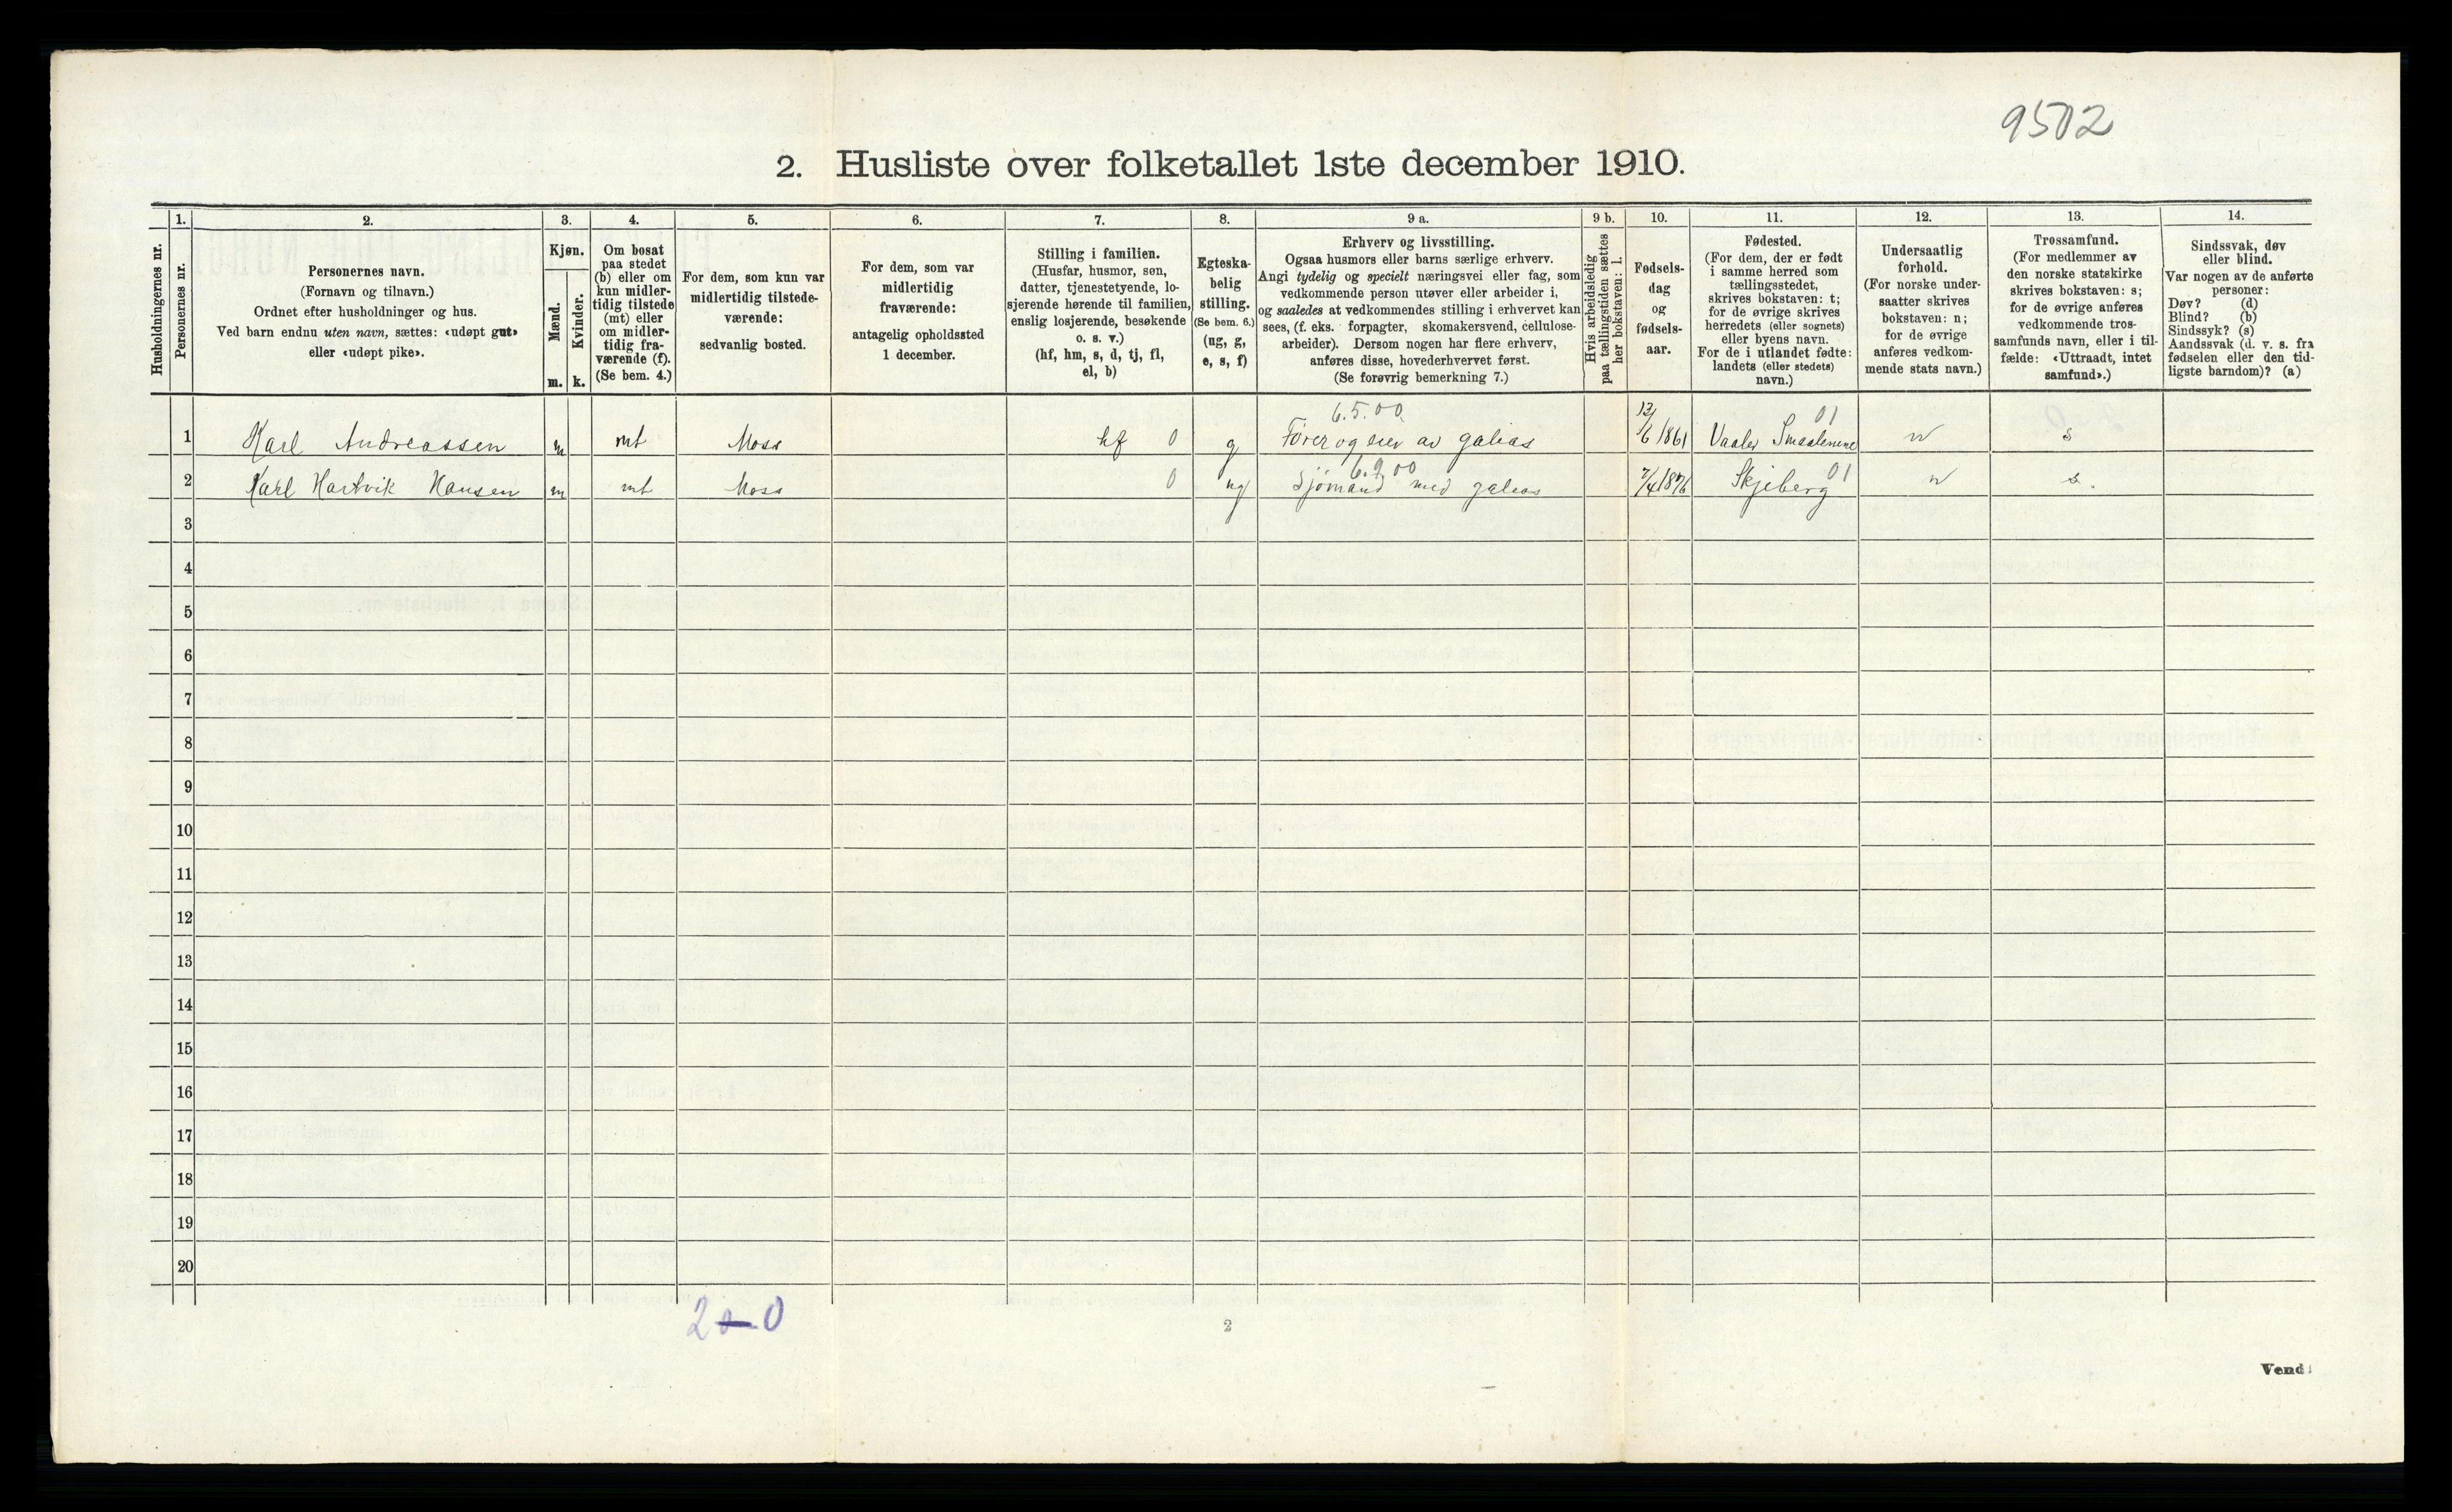 9502
2. Husliste over folketallet 1ste december 1910.
Husholdningernes nr.
1.
Personernes nr.
2.
Personernes navn.
(Fornavn og tilnavn.)
Ordnet efter husholdninger og hus.
Ved barn endnu uten navn, sættes: «udøpt gut»
eller «udøpt pike».
3.
Kjøn.
Mænd.
Kvinder.
m. k.
4.
Om bosat
paa stedet
(b) eller om
kun midler-
tidig tilstede
(mt) eller
om midler-
tidig fra-
værende (f).
(Se bem. 4.)
5.
For dem, som kun var
midlertidig tilstede-
værende:
sedvanlig bosted.
6.
For dem, som var
midlertidig
fraværende:
antagelig opholdssted
1 december.
7.
Stilling i familien.
(Husfar, husmor, søn,
datter, tjenestetyende, lo-
sjerende hørende til familien,
enslig losjerende, besøkende
o. s. v.)
(hf, hm, s, d, tj, fl,
el, b)
8.
Egteska-
belig
stilling.
(Se bem. 6.)
(ug, g,
e, s, f)
9 a.
Erhverv og livsstilling.
Ogsaa husmors eller barns særlige erhverv.
Angi tydelig og specielt næringsvei eller fag, som
vedkommende person utøver eller arbeider i,
og saaledes at vedkommendes stilling i erhvervet kan
sees, (f. eks. forpagter, skomakersvend, cellulose-
arbeider). Dersom nogen har flere erhverv,
anføres disse, hovederhvervet først.
(Se forøvrig bemerkning 7.)
9 b.
Hvis arbeidsledig
paa tællingstiden sættes
her bokstaven: l.
10.
Fødsels-
dag
og
fødsels-
aar.
11.
Fødested.
(For dem, der er født
i samme herred som
tællingsstedet,
skrives bokstaven: t;
for de øvrige skrives
herredets (eller sognets)
eller byens navn.
For de i utlandet fødte:
landets (eller stedets)
navn.)
12.
Undersaatlig
forhold.
(For norske under-
saatter skrives
bokstaven: n;
for de øvrige
anføres vedkom-
mende stats navn.)
13.
Trossamfund.
(For medlemmer av
den norske statskirke
skrives bokstaven: s;
for de øvrige anføres
vedkommende tros-
samfunds navn, eller i til-
fælde: «Uttraadt, intet
samfund».)
14.
Sindssvak, døv
eller blind.
Var nogen av de anførte
personer:
Døv? (d)
Blind? (b)
Sindssyk? (s)
Aandssvak (d. v. s. fra
fødselen eller den tid-
ligste barndom)? (a)
6.5.00 01
1 Karl Andreassen m mt Moss hf 0 g Fører og eier av galias 12/6 1861 Vaaler Smaalenene n s
6.9.00 01
2 Karl Hartvik Hansen m mt Moss 0 ug Sjømand med galias 7/4 1876 Skjeberg n s.
3
4
5
6
7
8
9
10
11
12
13
14
15
16
17
18
19
20
2 0
2
Vend!